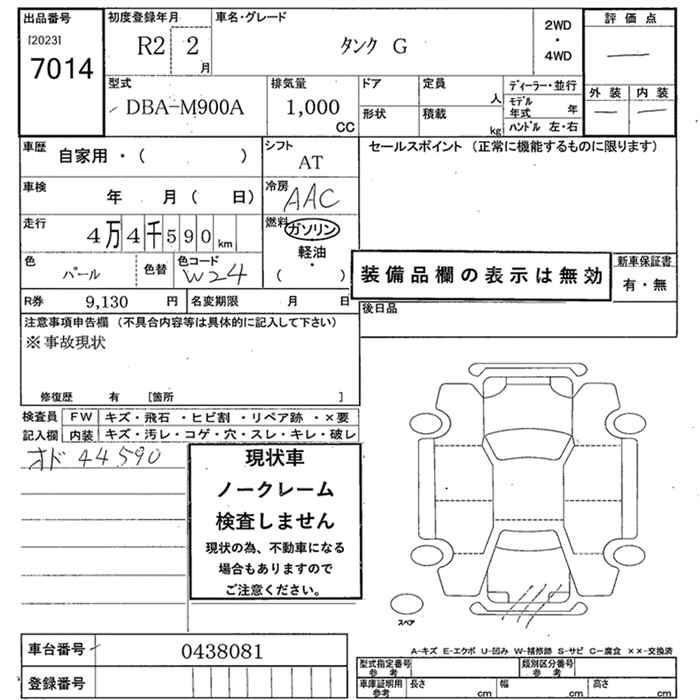 出品番号
[2023]
7014
初度登録年月
R2 2月
車名・グレード
タンク G
2WD
・
4WD
評価点
—
型式
DBA-M900A
排気量
1,000 CC
ドア
形状
定員 人
積載 kg
ディーラー・並行
モデル年式 年
ハンドル 左・右
外装 内装
— —
車歴 自家用・( )
シフト AT
セールスポイント (正常に機能するものに限ります)
車検 年 月 ( 日)
冷房 AAC
走行 4万4千590km
燃料 ガソリン
軽油
・
( )
色 パール 色替
色コード W24
装備品欄の表示は無効
新車保証書
有・無
R券 9,130 円
名変期限 月 日
後日品
注意事項申告欄 (不具合内容等は具体的に記入して下さい)
※事故現状
修復歴 有 [箇所 ]
検査員 FW キズ・飛石 ・ヒビ割 ・リペア跡 ・×要
記入欄 内装 キズ・汚レ・コゲ・穴・スレ・キレ・破レ
オド 44590
現状車
ノークレーム
検査しません
現状の為、不動車になる
場合もありますので
ご注意ください。
スペア
A-キズ E-エクボ U-凹み W-補修跡 S-サビ C-腐食 ××-交換済
車台番号 0438081
登録番号
型式指定番号
参考
類別区分番号
参考
車庫証明用
参考
長さ cm 幅 cm 高さ cm